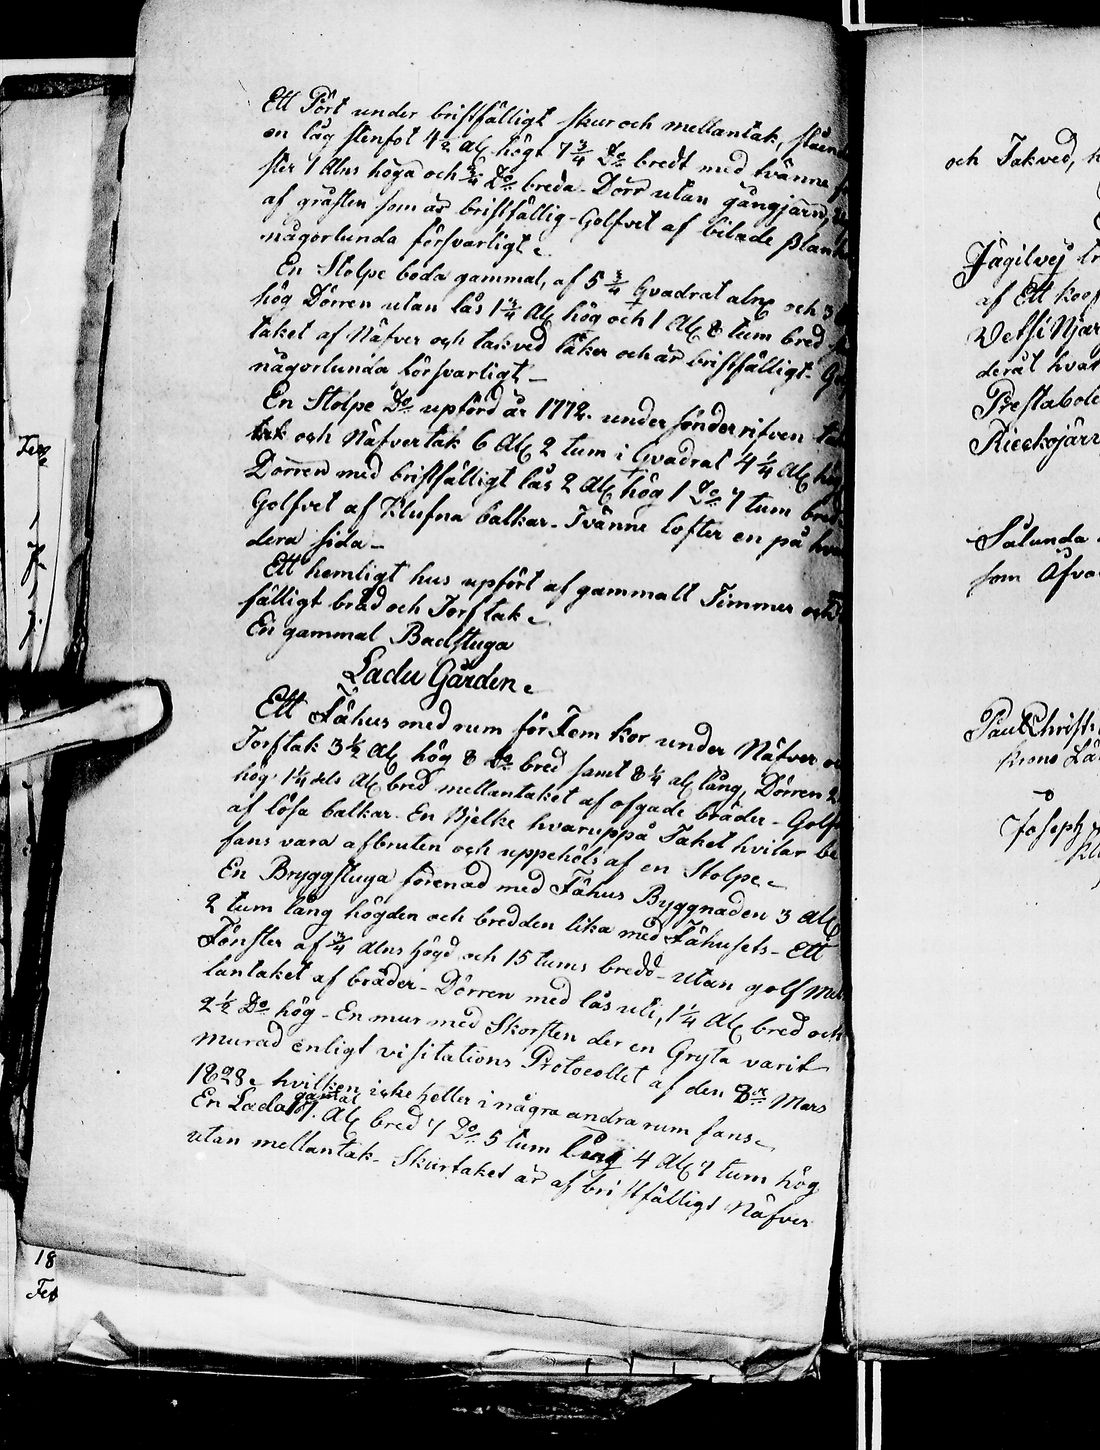 Ett Pört under bristfälligt skur och mellantak, stående
en låg stenfot 4½ Al högt 7¾ Do bredt med tvänne
ster 1 Alns höga och ¾ Do breda. Dörr utan gångjärn,
af gråsten som är bristfällig - Golfvet af bilade Plank
någorlunda försvarligt.
En Stolpe boda gammal, af 5¾ Qvadrat aln och 3
hög Dörren utan lås 1¾ Al hög och 1 Al 8 tum bred
taket af Näfver och takved läker och är bristfälligt.
någorlunda försvarligt -
En Stolpe Do upförd år 1772. under sönderrifven
och Näfvertak 6 Al 2 tum i Qvadrat 4¼ Al hög
Dörren med bristfälligt lås 2 Al hög 1 Do 7 tum bred
Golfvet af Klufna balkar - Tvänne lofter en på hvar
dera sida -
Ett hemligt hus upfört af gammalt Timmer och
fälligt bräd och Torftak.
En gammal Badstuga
Ladu Gården.
Ett Fähus med rum för Fem kor under Näfver
Torftak 3½ Al hög 8 Do bred samt 8¼ al lång, Dörren
hög 1¼ dels Al bred mellantaket af ofgade bräder - Golf
af lösa balkar. En Bjelke hvaruppå Taket hvilar be
fans vara afbruten och uppehöls af en Stolpe.
En Bryggstuga förenad med Fähus Byggnaden 3 Al
2 tum lång högden och bredden lika med Fähusets - Ett
Fönster af ¾ Alns högd och 15 tums bredd - utan golf Mel
lantaket af bräder - Dörren med lås uti, 1¼ Al bred och
2½ Do hög - En mur med Skorsten der en Gryta varit
murad enligt visitations Protocollet af den 8de Mars
1828. hvilken icke heller i några andra rum fans.
En Lada gammal 7. Al bred 7 Do 5 tum lång 4 Al 7 tum hög
utan mellantak. Skurtaket är af bristfälligt Näfver
och Takved,
Jägilvej
af Ett
Vetsi Njar
derät hvar
Prestabole
Rieskojärv
Sålunda
som Ofva
Paul Christ
krono Lä
Joseph
18